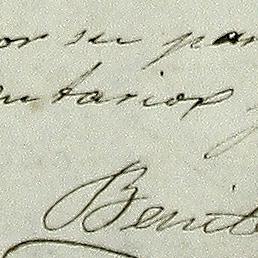 or su par
entarios y
Benit